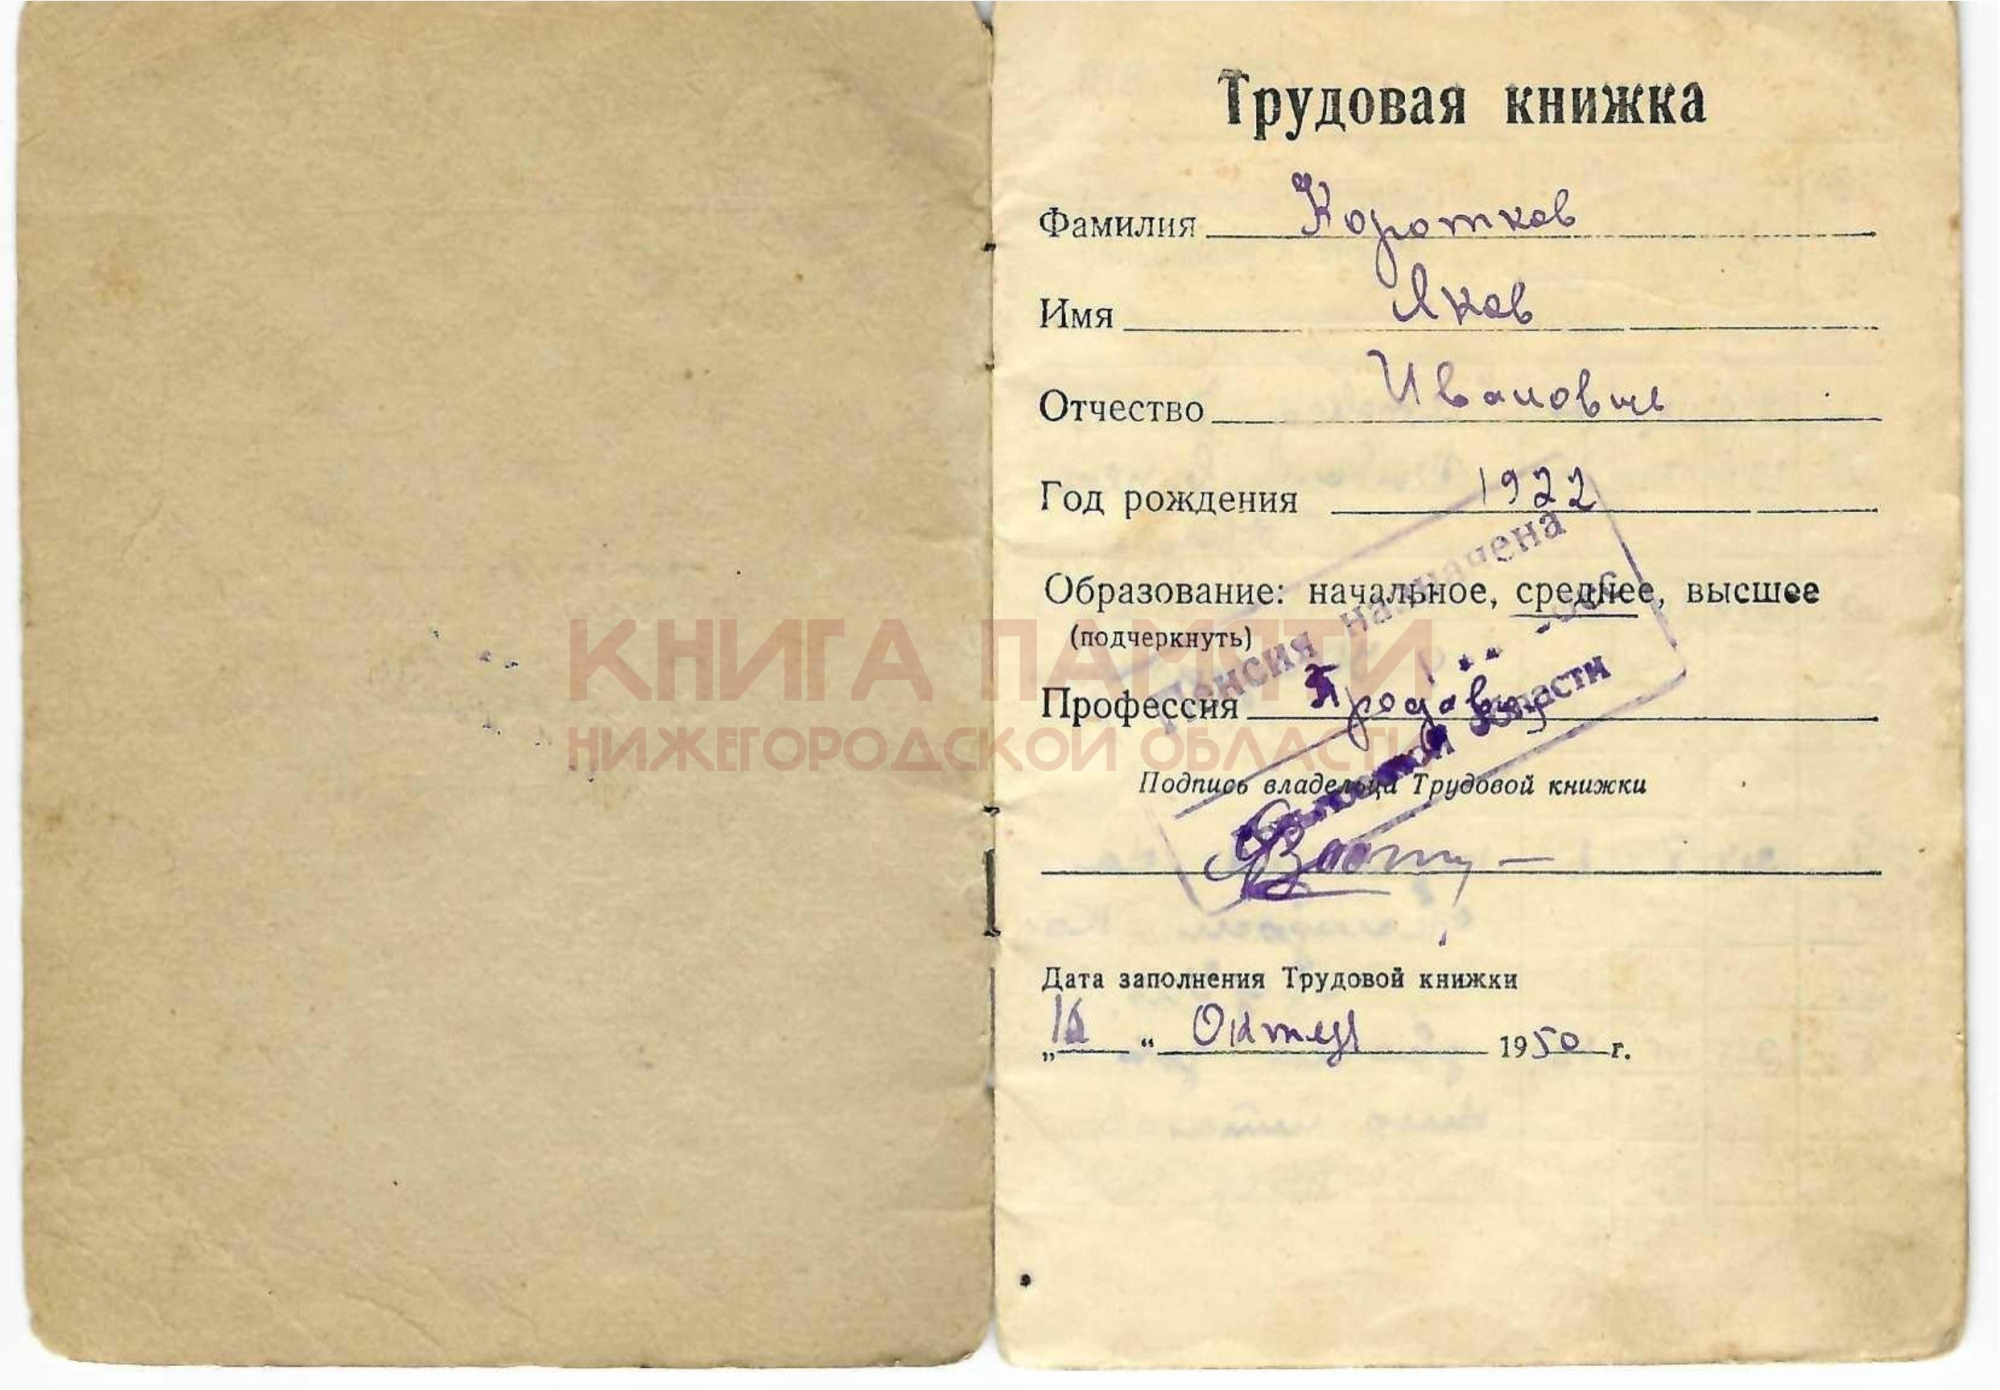 Трудовая книжка
Фамилия Коротков
Имя Яков
Отчество Иванович
Год рождения 1922
Образование: начальное, среднее, высшее
(подчеркнуть)
Профессия Продавец
Подпись владельца Трудовой книжки
Дата заполнения Трудовой книжки
„ “ Октяб 1950 г.
Пенсия назначена
области
КНИГА ПАМЯТИ
НИЖЕГОРОДСКОЙ ОБЛАСТИ